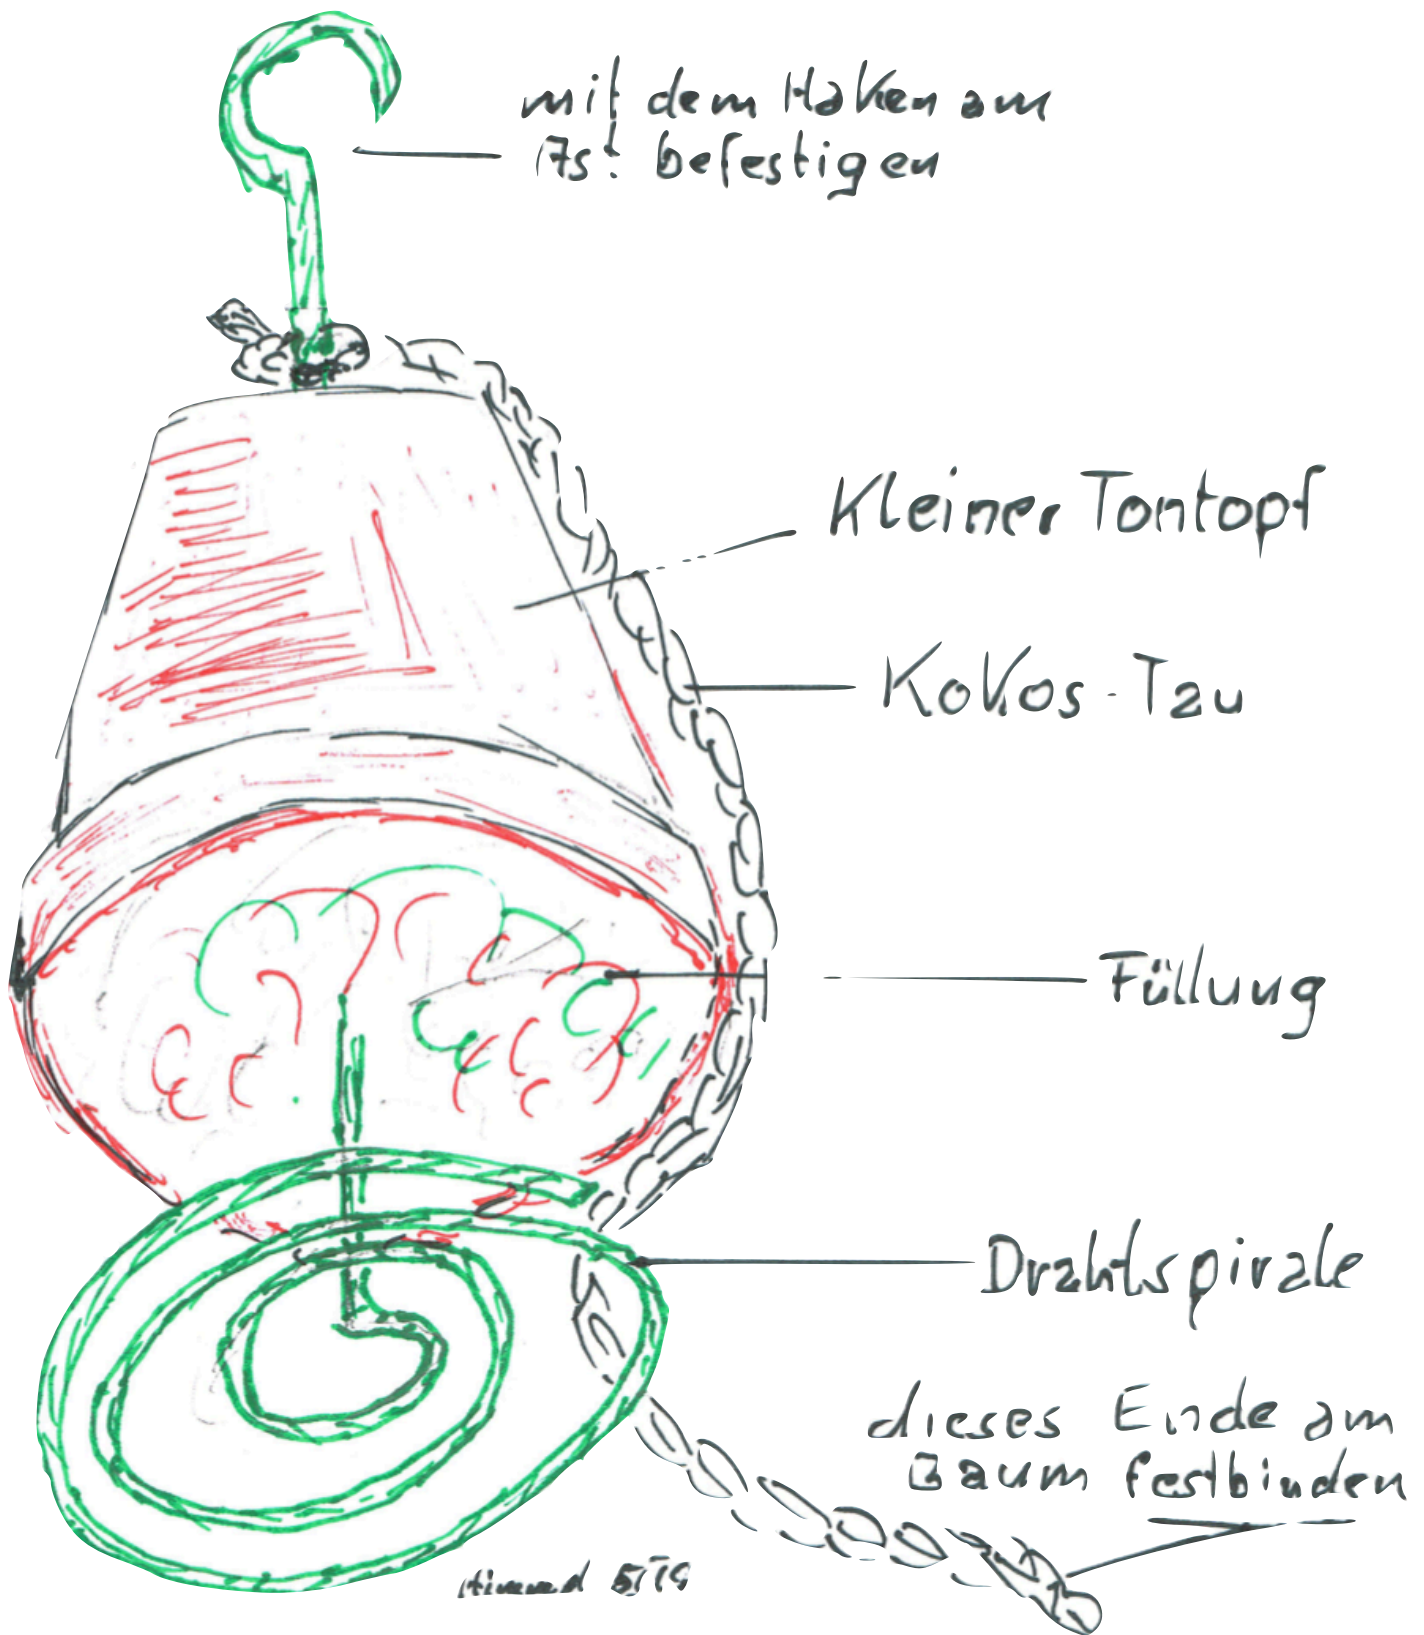 mit dem Haken am
Ast befestigen
Kleiner Tontopf
Kokos-Tau
Füllung
Drahtspirale
dieses Ende am
Baum festbinden